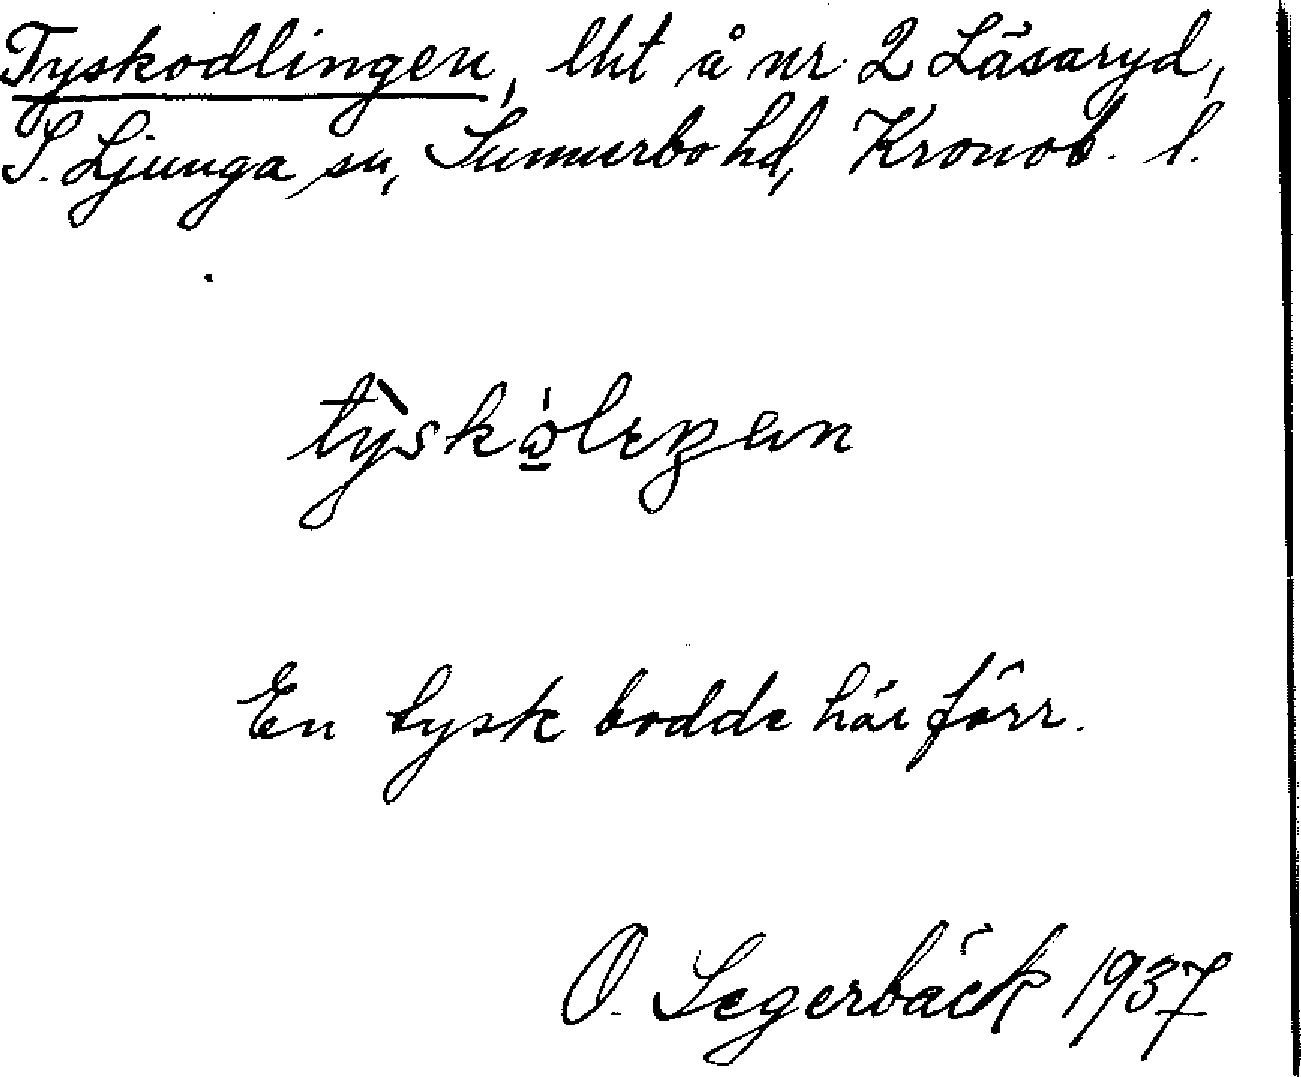 Tyskodlingen, lht å nr 2 Läsaryd,
S. Ljunga sn, Sunnerbo hd, Kronob. l.
En tysk bodde här förr.
O. Segerbäck 1937